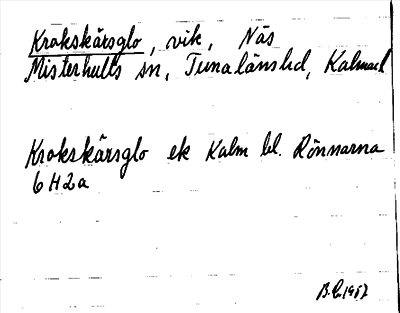 Krokskärsglo, vik, Näs
Misterhults sn, Tunaläns hd, Kalmar l
Krokskärsglo ek Kalm bl. Rönnarna
6H2a
1987